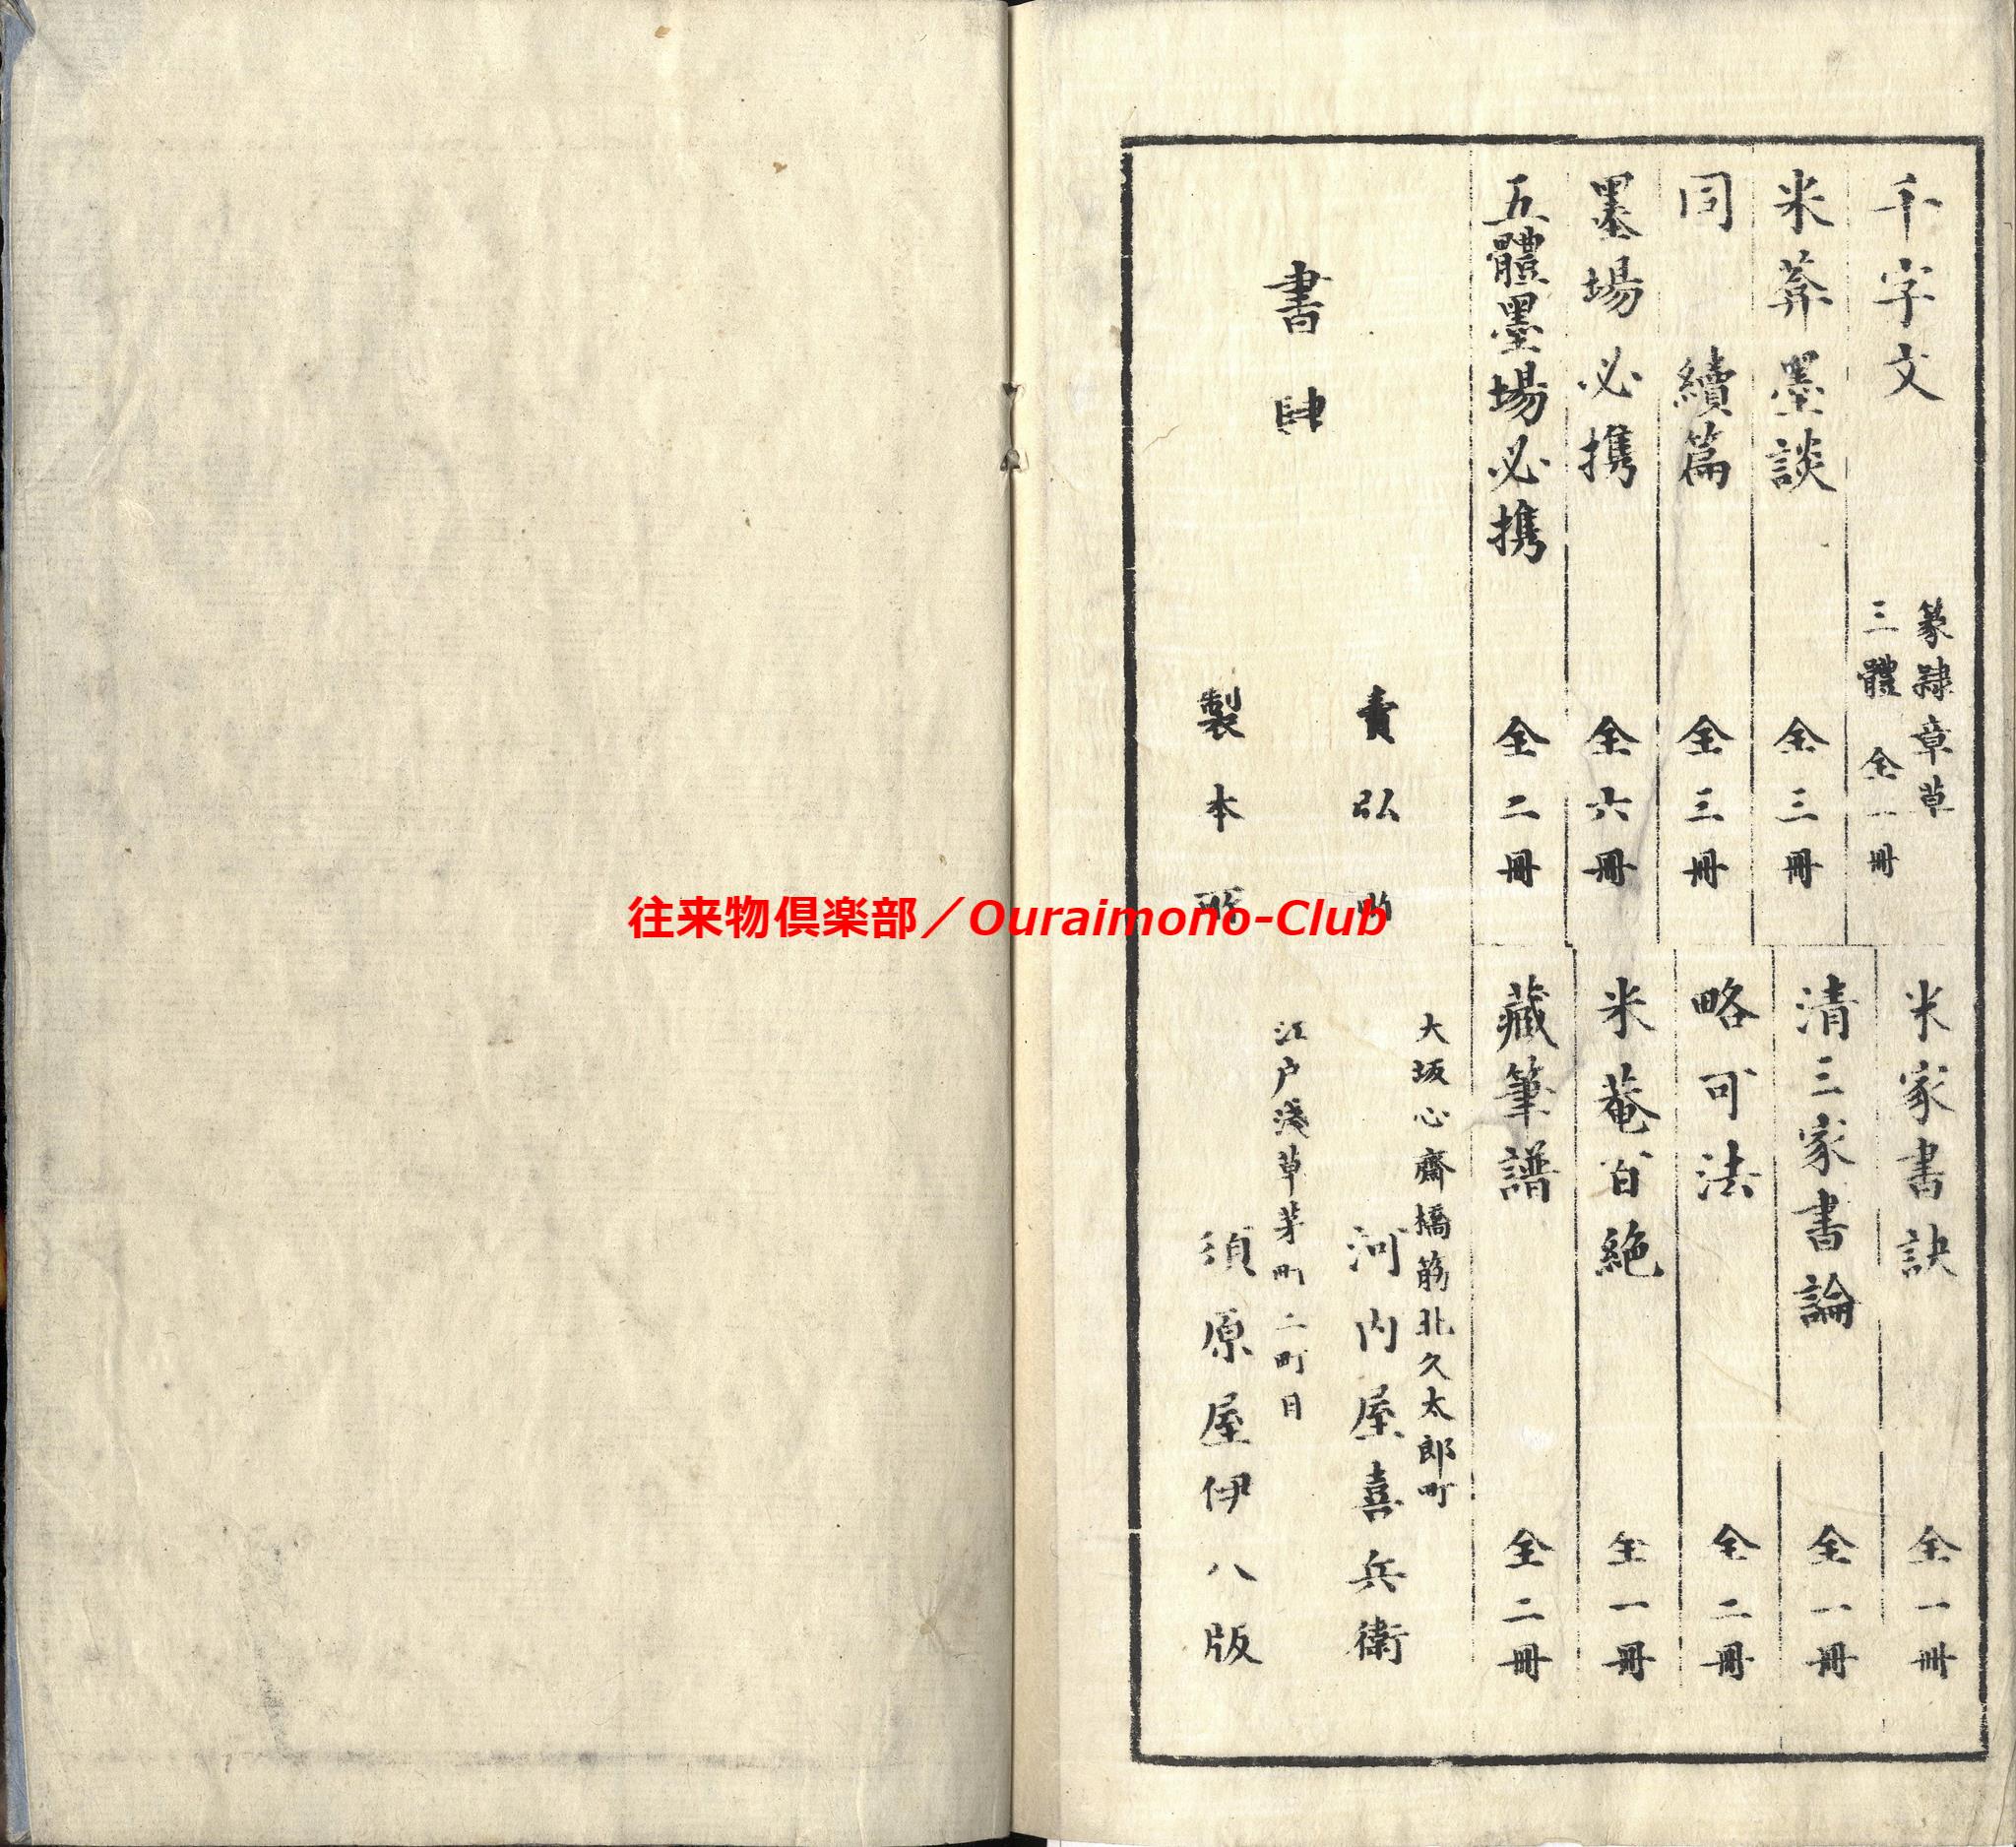 千字文 篆隷章草三體 全一冊
米家書訣 全一冊
米葊墨談 全三冊
清三家書論 全一冊
同 續篇 全三冊
略可法 全二冊
墨場必携 全六冊
米菴百絶 全一冊
五體墨場必携 全二冊
藏筆譜 全二冊
書肆
大坂心齋橋筋北久太郎町
賣弘所 河内屋喜兵衛
江户淺草茅町二町目
製本所 須原屋伊八版
往来物倶楽部／Ouraimono-Club